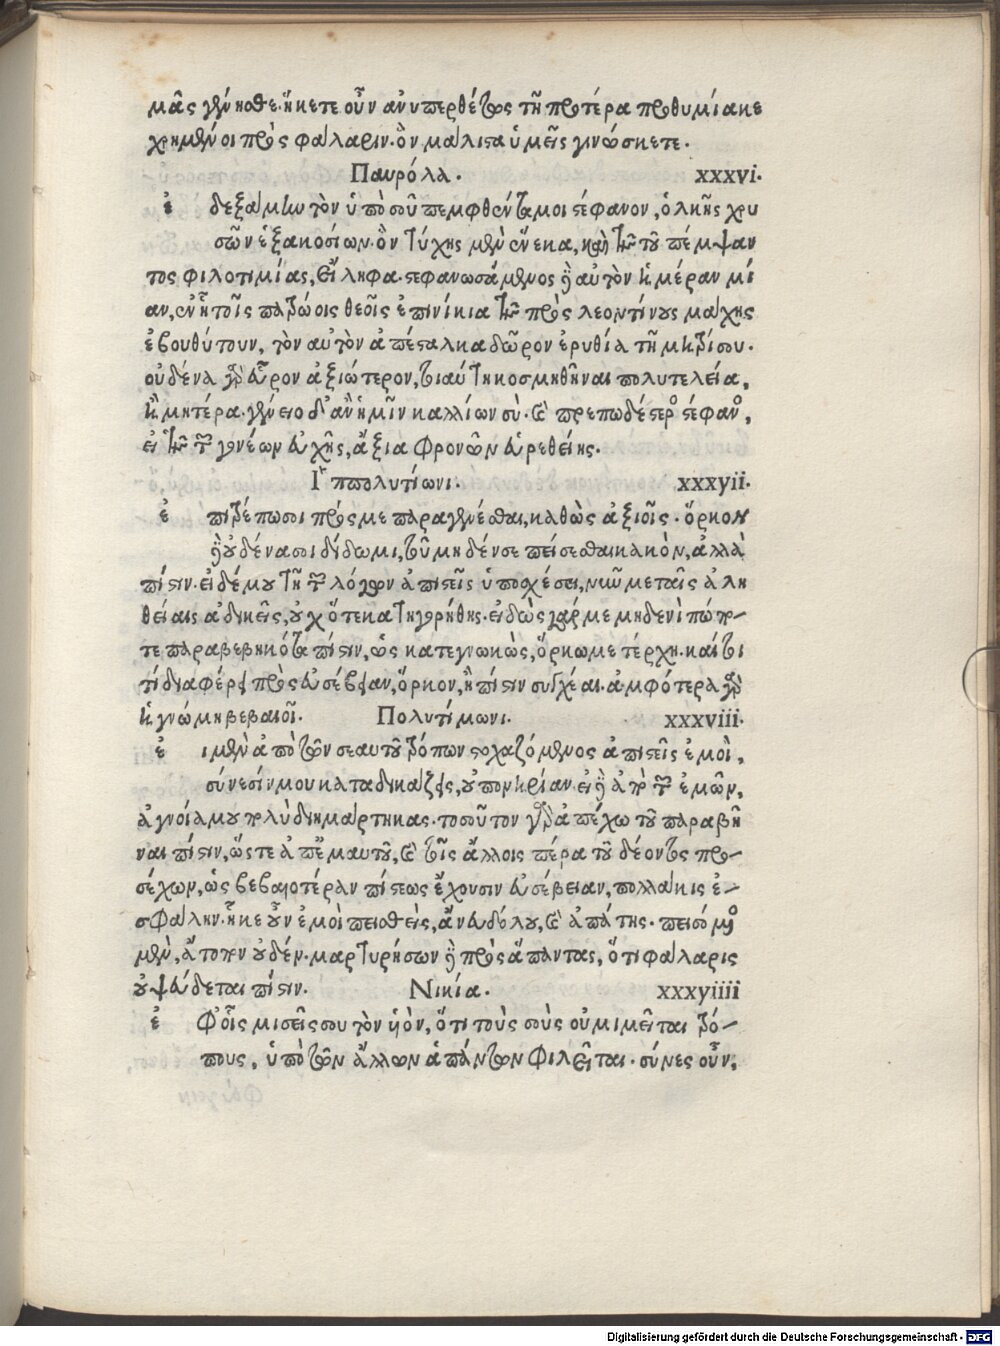 μᾶς γένησθε. ἥκετε οὖν ἀνυπερθέτως τῇ προτέρα προθυμία κε
χρημένοι πρὸς φάλαριν. ὃν μάλιστα ὑμεῖς γινώσκετε.
Παυρόλα. xxxvi.
ἐ δεξάμην τὸν ὑπὸ σοῦ πεμφθέντα μοι στέφανον, ὁλκῆς χρυ
σῶν ἑξακοσίων. ὃν τύχης μὲν ἕνεκα, καὶ τῆς τοῦ πέμψαν
τος φιλοτιμίας, εἴληφα. στεφανωσάμενος δὲ αὐτὸν ἡμέραν μί
αν, ἐν ᾗ τοῖς πατρώοις θεοῖς ἐπινίκια τῆς πρὸς λεοντίνους μάχης
ἐβουθύτουν, τὸν αὐτὸν ἀπέσταλκα δῶρον ἐρυθία τῇ μητρί σου.
οὐδένα γὰρ εὗρον ἀξιώτερον, τοιαύτη κοσμηθῆναι πολυτελεία,
ἢ μητέρα. γένοιο δ' ἂν ἡμῖν καλλίων σὺ. καὶ πρεπωδέστερος στέφανος,
εἰ τῆς τῶν γονέων εὐχῆς, ἄξια φρονῶν εὑρεθείης.
Ἱππολυτίωνι. xxxvii.
ἐ πιτρέπω σοι πρός με παραγενέσθαι, καθὼς ἀξιοῖς. ὅρκον
δὲ οὐδένα σοι δίδωμι, τοῦ μηδέν σε πείσεσθαι κακὸν, ἀλλὰ
πίστιν. εἰ δέ μου τῇ τῶν λόγων ἀπιστεῖς ὑποσχέσει, νῦν με ταῖς ἀλη
θείαις ἀδικεῖς, οὐχ ὅτε κατηγορήθης. εἰδὼς γάρ με μηδενὶ πώπο-
τε παραβεβηκότα πίστιν, ὡς κατεγνωκὼς, ὅρκω μετέρχη. καίτοι
τί διαφέρει πρὸς εὐσέβειαν, ὅρκον, ἢ πίστιν συγχέαι. ἀμφότερα γὰρ
ἡ γνώμη βεβαιοῖ. Πολυτίμωνι. xxxviii.
ἐ ι μὲν ἀπὸ τῶν σεαυτοῦ τρόπων στοχαζόμενος ἀπιστεῖς ἐμοὶ,
σύνεσίν μου καταδικάζεις, οὐ πονηρίαν. εἰ δὲ ἀπὸ τῶν ἐμῶν,
ἀγνοία μου πολὺ διημάρτηκας. τοσοῦτον γὰρ ἀπέχω τοῦ παραβῆ
ναι πίστιν, ὥστε ἀπ' ἐμαυτοῦ, καὶ τοῖς ἄλλοις πέρα τοῦ δέοντος προ-
σέχων, ὡς βεβαιοτέραν πίστεως ἔχουσιν εὐσέβειαν, πολλάκις ἐ-
σφάλην. ἧκε οὖν ἐμοὶ πεισθεὶς, ἄνευ δόλου, καὶ ἀπάτης. πείσῃ
μὲν, ἄτοπον οὐδέν. μαρτυρήσων δὲ πρὸς ἅπαντας, ὅτι φάλαρις
οὐ ψεύδεται πίστιν. Νικία. xxxviiii
ἐ φ' οἷς μισεῖς σου τὸν υἱὸν, ὅτι τοὺς σοὺς οὐ μιμεῖται τρό-
πους, ὑπὸ τῶν ἄλλων ἁπάντων φιλεῖται. σύνες οὖν,
Digitalisierung gefördert durch die Deutsche Forschungsgemeinschaft - DFG